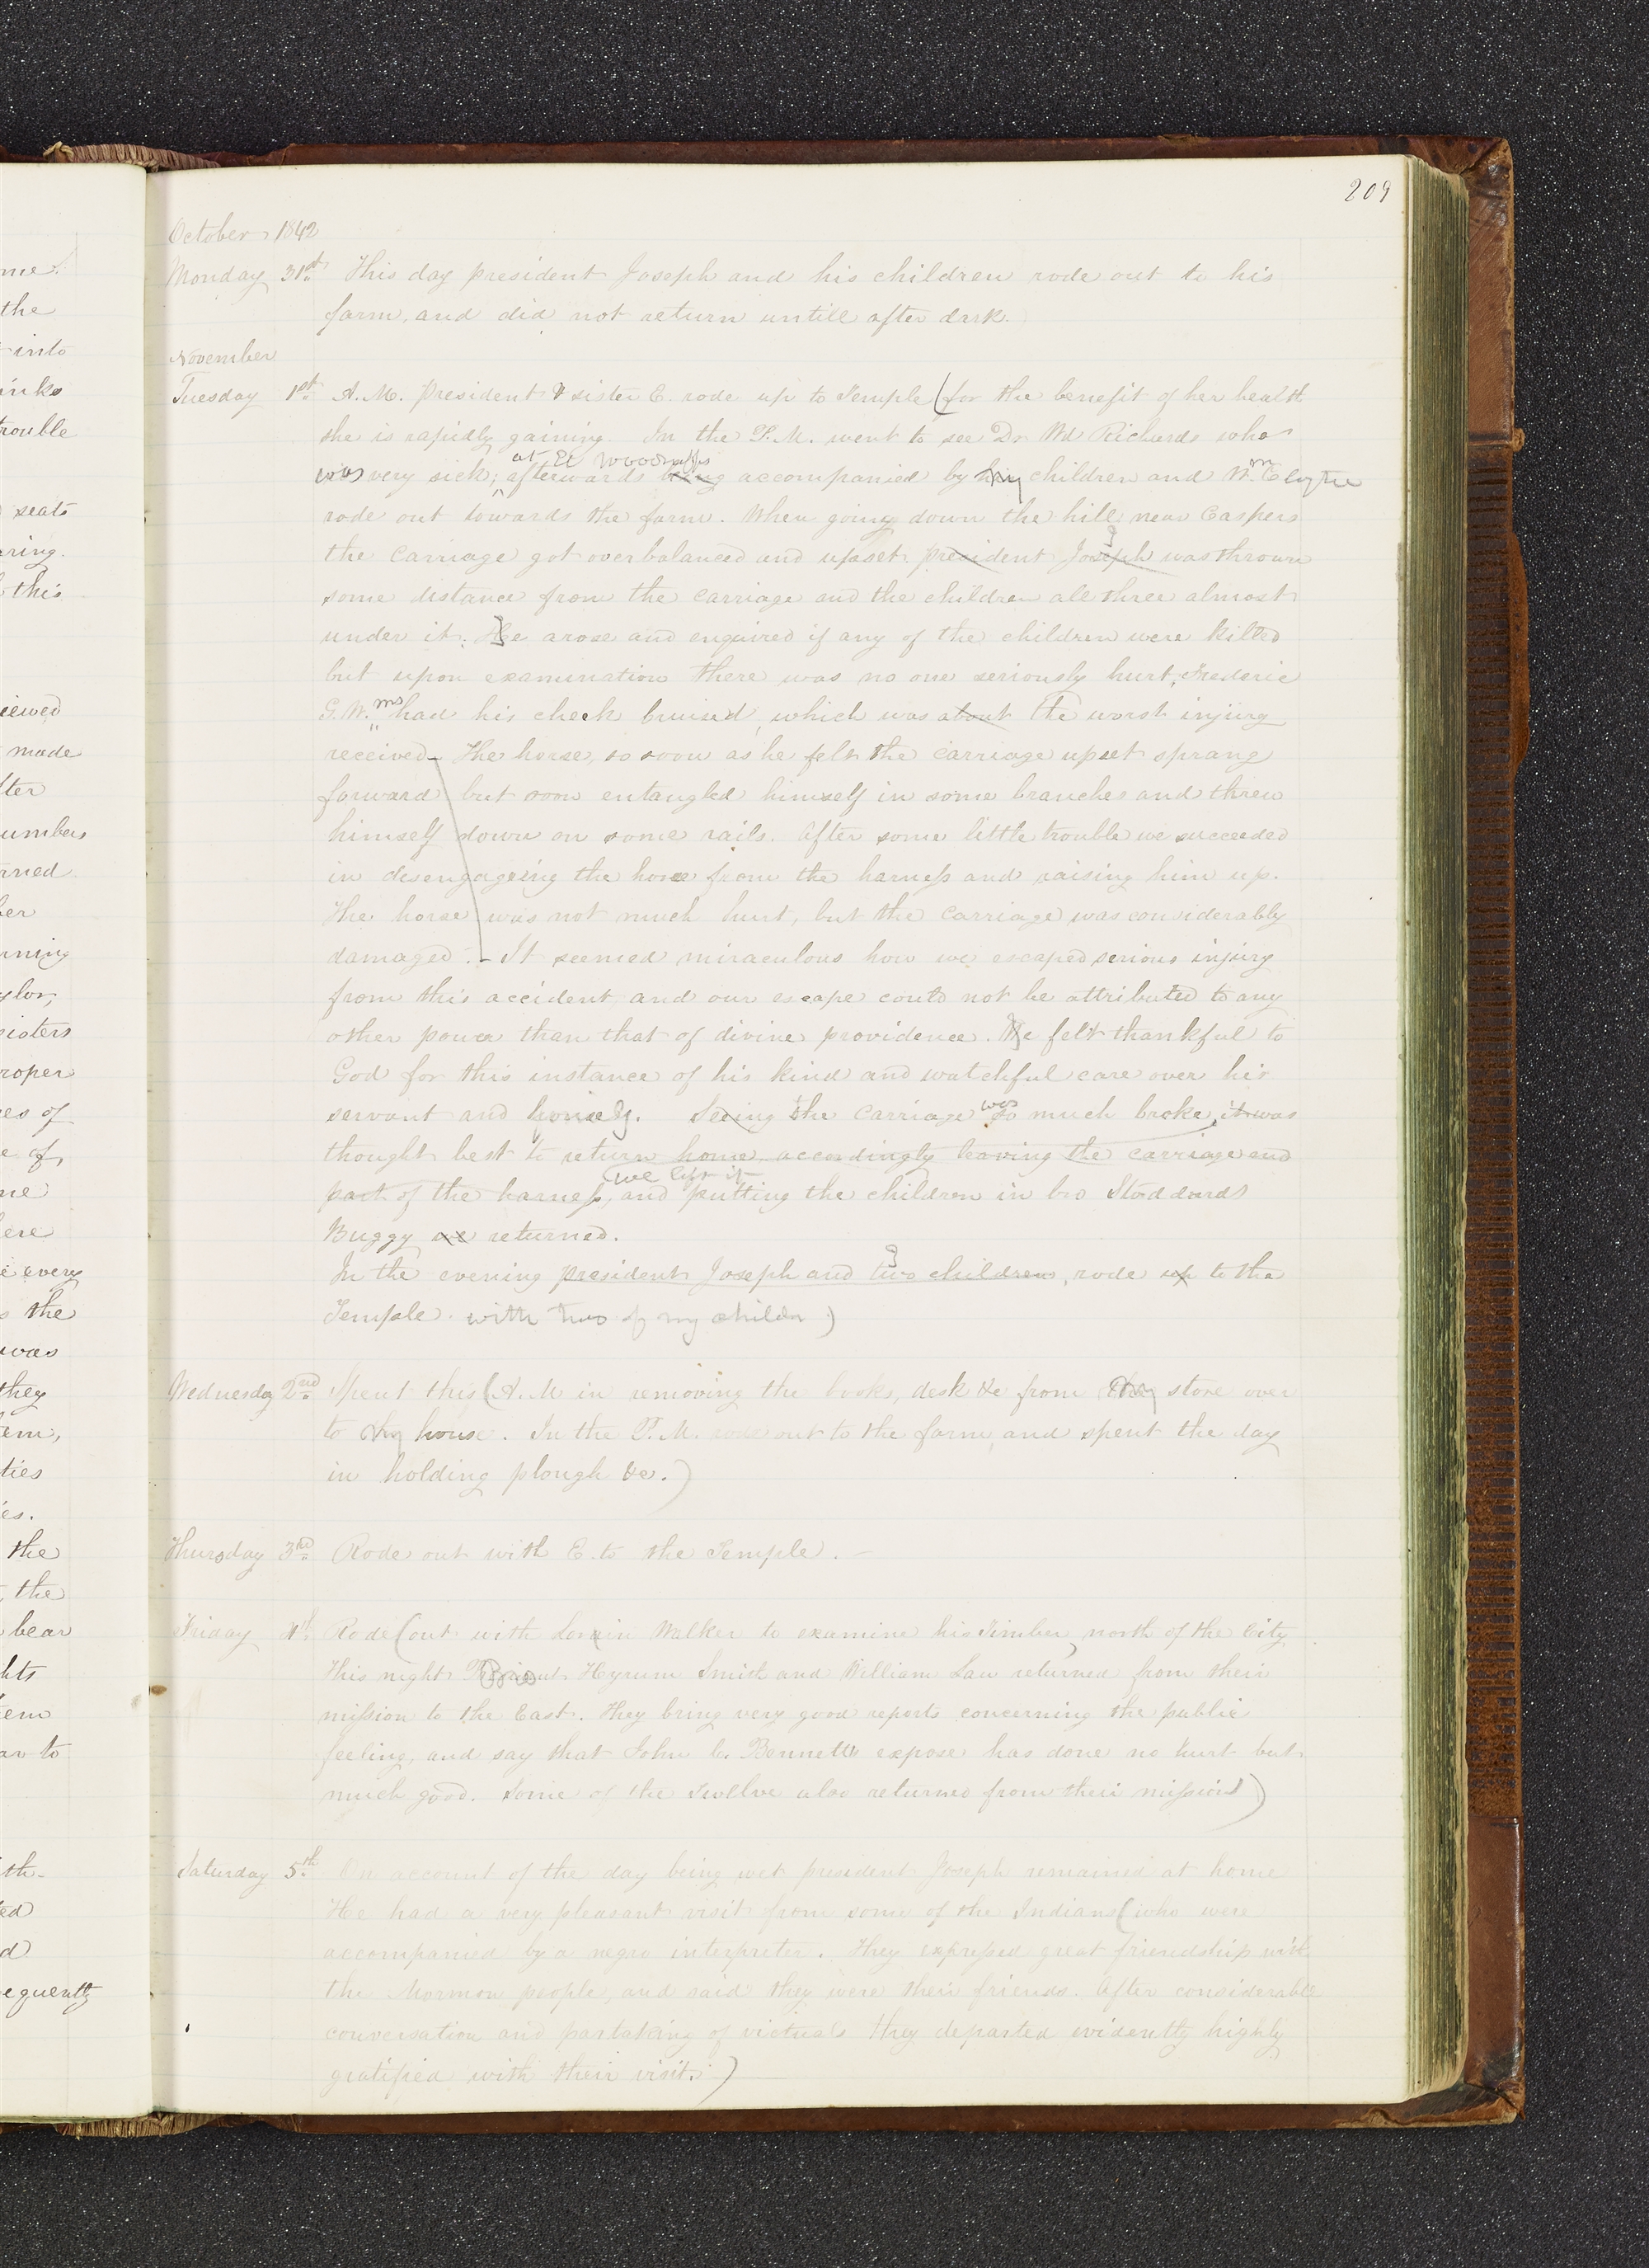 209
October, 1842
Monday 31st. This day president Joseph and his children rode out to his
farm, and did not return untill after dark.
November
Tuesday 1st. A. M. President & sister E. rode up to Temple (for the benefit of her health
she is rapidly gaining. In the P. M. went to see Dr Wd Richards who
was very sick; afterwards being accompanied by my children and Wm. Clayton
at El Woodruffs
rode out towards the farm. When going down the hill near Caspers
the carriage got overbalanced and upset. president Joseph was thrown
some distance from the carriage and the children all three almost
under it. He arose and enquired if any of the children were killed
but upon examination there was no one seriously hurt, Frederic
G. Wms. had his cheek bruised, which was about the worst injury
received. The horse, so soon as he felt the carriage upset sprang
forward but soon entangled himself in some branches and threw
himself down on some rails. After some little trouble we succeeded
in disengageing the horse from the harness and raising him up.
The horse was not much hurt, but the carriage was considerably
damaged. It seemed miraculous how we escaped serious injury
from this accident and our escape could not be attributed to any
other power than that of divine providence. We felt thankful to
God for this instance of his kind and watchful care over his
servant and family. Seeing the carriage was so much broke, it was
thought best to return home accordingly leaving the carriage and
we left it
part of the harness, and putting the children in bro Stoddards
Buggy we returned.
In the evening president Joseph and two children, rode up to the
Temple. with two of my childn)
Wednesday 2nd. Spent this (A. M in removing the books, desk &c from my store over
to my house. In the P. M. rode out to the farm, and spent the day
in holding plough &c.)
Thursday 3rd. Rode out with E. to the Temple. —
Friday 4th. Rode (out with Lorin Walker to examine his Timber, north of the City.
This night Hyrum Smith and William Law returned from their
mission to the East. They bring very good reports concerning the public
feeling, and say that John C. Bennetts expose has done no hurt but
much good. Some of the Twelve also returned from their missions)
Saturday 5th. On account of the day being wet president Joseph remained at home
He had a very pleasant visit from some of the Indians (who were
accompanied by a negro interpreter. They expressed great friendship with
the Mormon people, and said they were their friends. After considerable
conversation and partaking of victuals they departed evidently highly
gratified with their visit.)